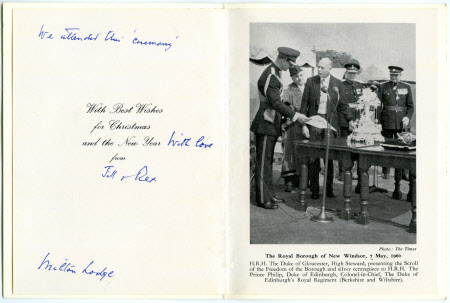 We attended this 'ceremony'
With Best Wishes
for Christmas
and the New Year With love
from
Jill & Rex
Milton Lodge
Photo: The Times
The Royal Borough of New Windsor, 7 May, 1960
H.R.H. The Duke of Gloucester, High Steward, presenting the Scroll
of the Freedom of the Borough and silver centrepiece to H.R.H. The
Prince Philip, Duke of Edinburgh, Colonel-in-Chief, The Duke of
Edinburgh's Royal Regiment (Berkshire and Wiltshire).